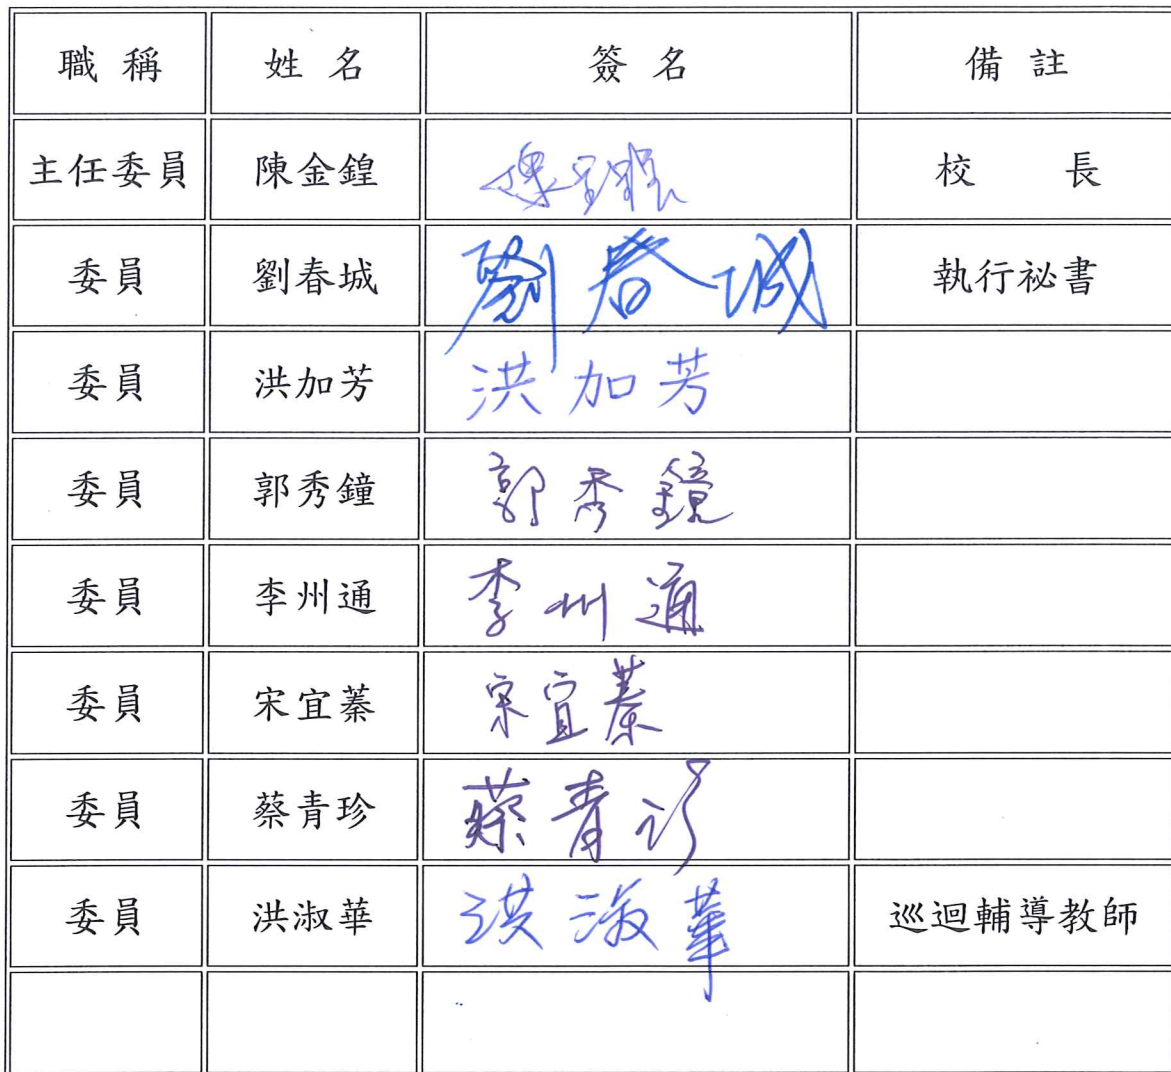 職稱 姓名 簽名 備註
主任委員 陳金鍠 陳金鍠 校長
委員 劉春城 劉春城 執行祕書
委員 洪加芳 洪加芳
委員 郭秀鐘 郭秀鐘
委員 李州通 李州通
委員 宋宜蓁 宋宜蓁
委員 蔡青珍 蔡青珍
委員 洪淑華 洪淑華 巡迴輔導教師